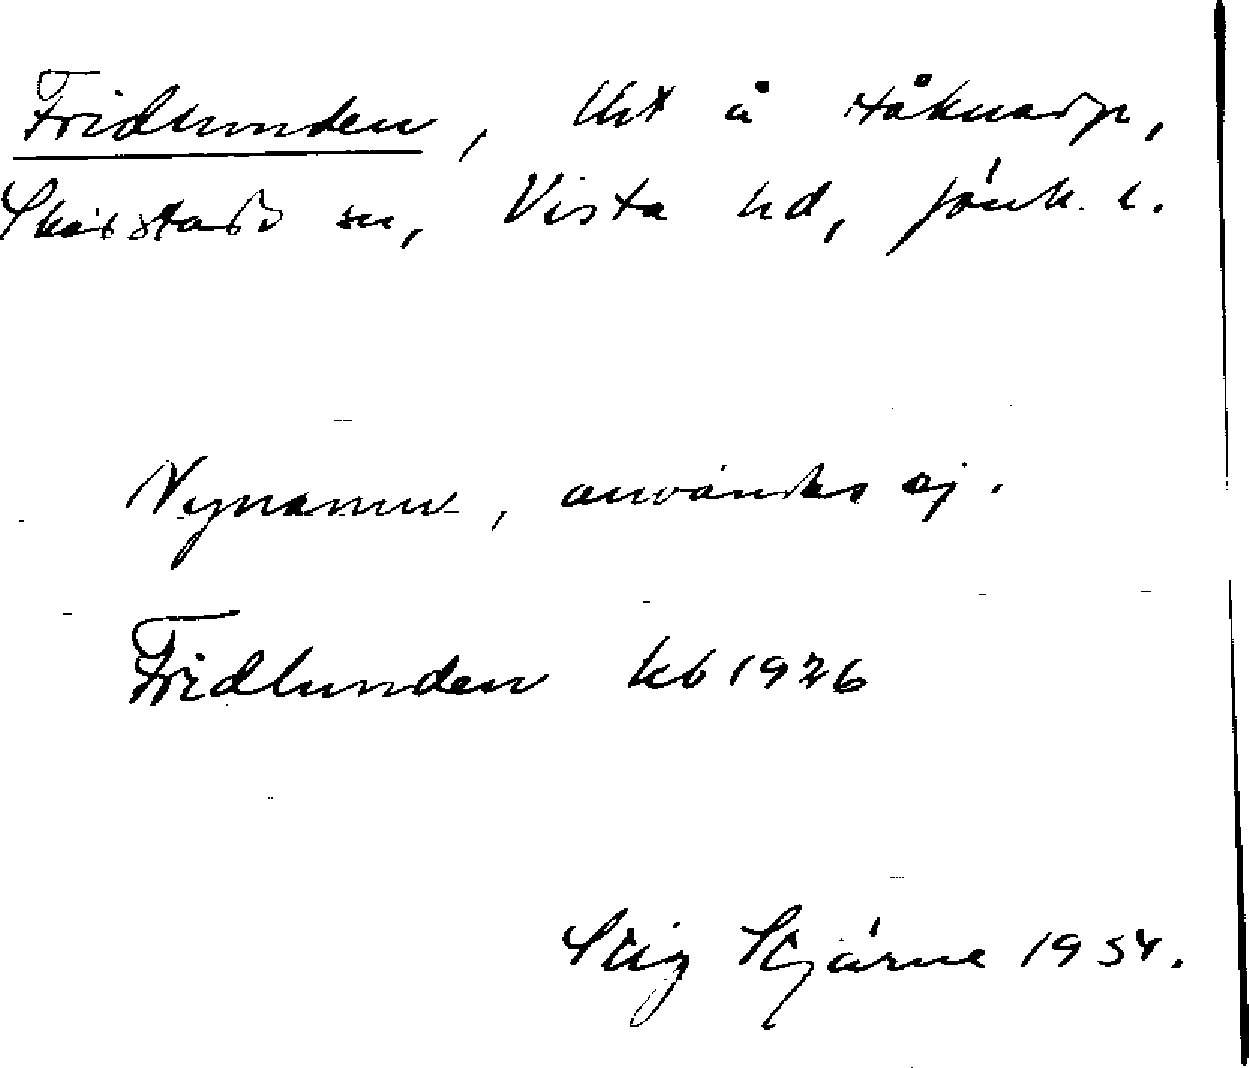 Fridlunden, lht å Håknarp,
Skärstads sn, Vista hd, Jönk. l.
Nynamn, användes ej.
Fridlunden kb 1926
Stig Stjärne 1954.